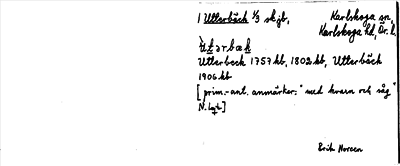 1 Utterbäck 1/3 skjb, Karlskoga sn,
Karlskoga hd, Ör. l.
Utterbeck 1757 kb, 1802 kb, Utterbäck
1906 kb
[prim.-ant. anmärker: "med kvarn och såg"
Erik Noreen